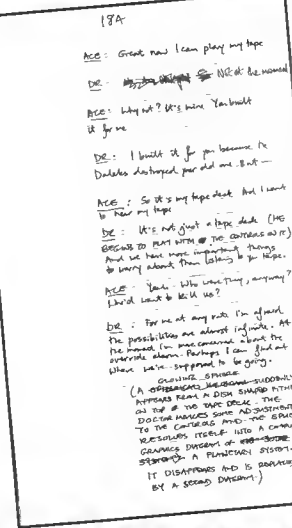 18A
ACE: Great now I can play my tape
DR - Not at the moment
ACE: Why not? It's mine. You built
it for me
DR: I built it for you because the
Daleks destroyed your old one. But —
ACE: So it's my tape deck. And I want
to hear my tape
DR: It's not just a tape deck (HE
BEGINS TO PLAY WITH THE CONTROLS ON IT)
And we have more important things
to worry about than listening to your tape.
ACE - Yeah. Who were they, anyway?
Who'd want to kill us?
DR: For me at any rate I'm afraid
the possibilities are almost infinite. At
the moment I'm more concerned about the
override alarm. Perhaps I can find out
where we're supposed to be going.
GLOWING SPHERE
(A SUDDENLY
APPEARS FROM A DISH SHAPED
ON TOP OF THE TAPE DECK - THE
DOCTOR MAKES SOME ADJUSTMENTS
TO THE CONTROLS AND THE SPHERE
RESOLVES ITSELF INTO A
GRAPHICS DIAGRAM OF
A PLANETARY SYSTEM.
IT DISAPPEARS AND IS REPLACED
BY A SECOND DIAGRAM.)